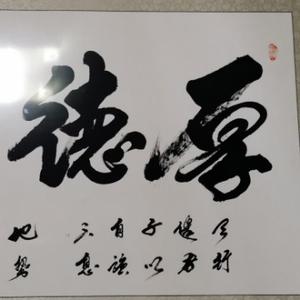 厚德
天行
健君
子以
自强
不息
地势